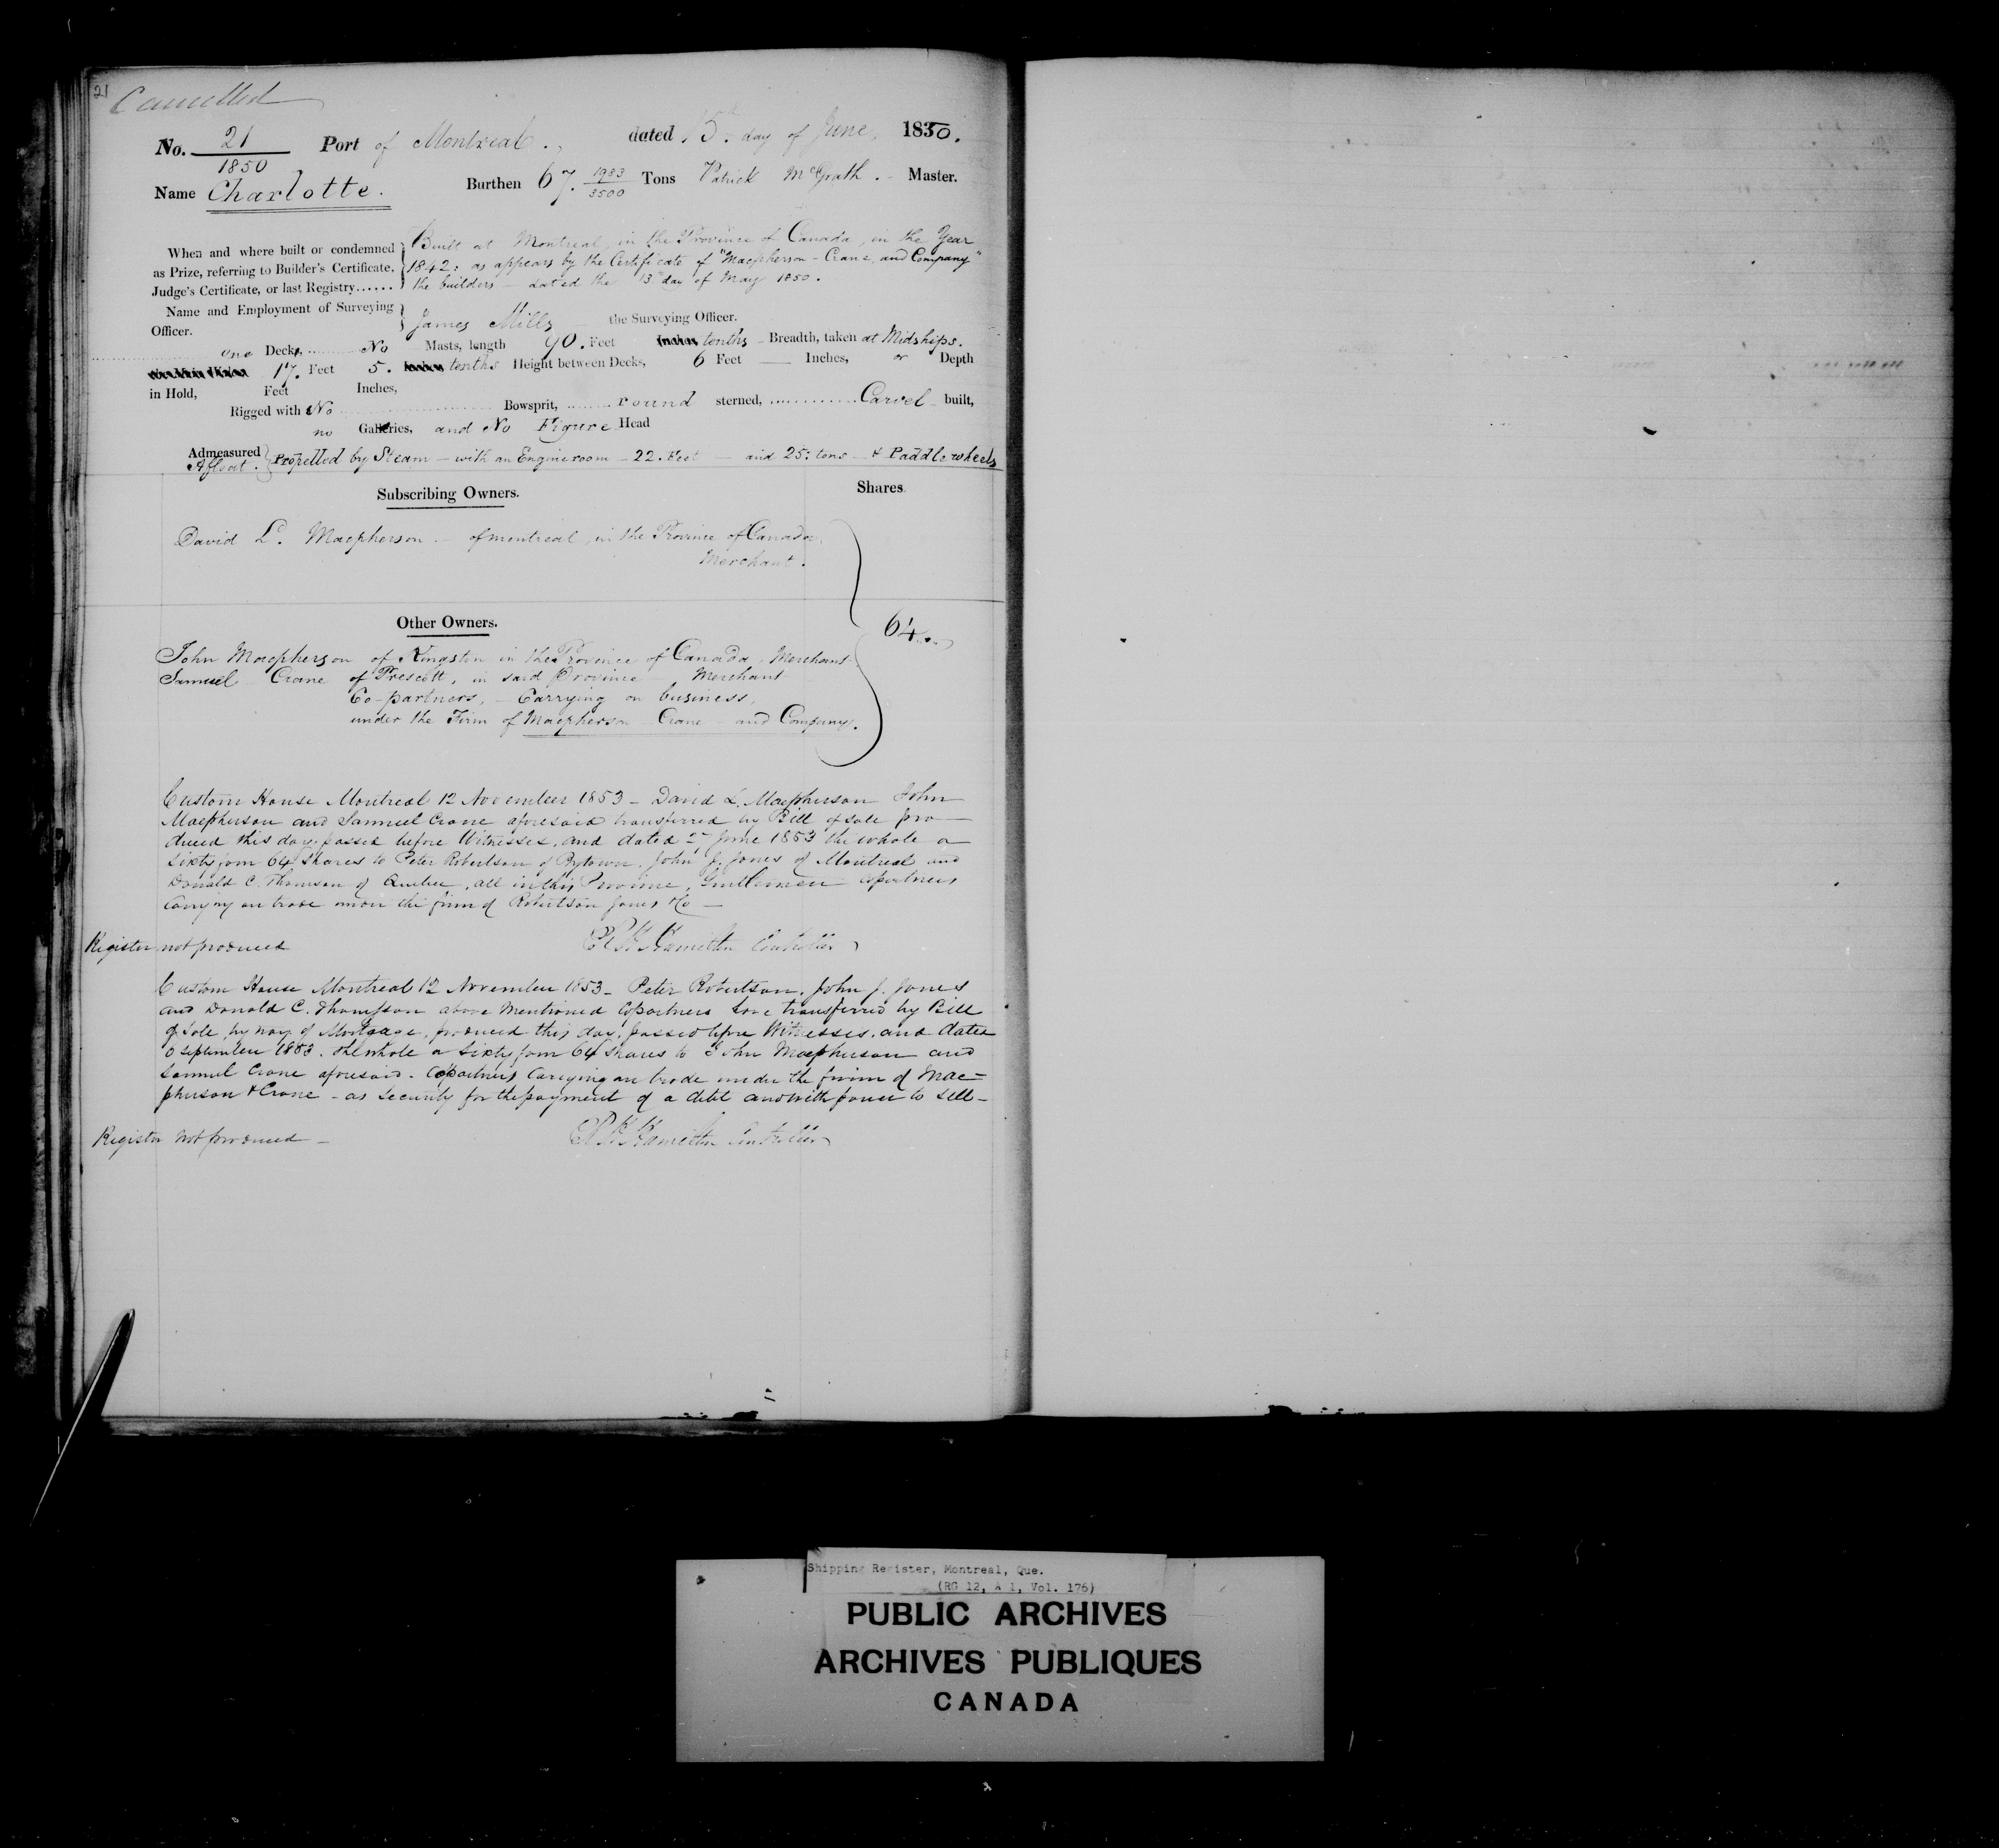 21 Cancelled
No. 21 Port of Montreal. dated 15th day of June, 1850.
1850
Name Charlotte. Burthen 67. 1983/3500 Tons Patrick McGrath. - Master.
When and where built or condemned as Prize, referring to Builder's Certificate, Judge's Certificate, or last Registry......
Built at Montreal, in the Province of Canada, in the Year
1842: as appears by the Certificate of "Macpherson - Crane, and Company"
the builders - dated the 13th day of May 1850.
Name and Employment of Surveying Officer.
James Mills the Surveying Officer.
one Decks, No Masts, length 90. Feet tenths - Breadth, taken at Midships.
17. Feet 5. tenths Height between Decks, 6 Feet — Inches, or Depth
in Hold, Feet Inches,
Rigged with No Bowsprit, round sterned, Carvel built,
no Galleries, and No Figure Head
Admeasured Afloat. Propelled by Steam - with an Engine room - 22. Feet - and 25: tons - & Paddlewheels
Subscribing Owners. Shares
David L. Macpherson - of Montreal, in the Province of Canada,
Merchant.
64
Other Owners.
John Macpherson of Kingston in the Province of Canada, Merchant
Samuel Crane of Prescott, in said Province Merchant
Co-partners, - Carrying on business,
under the Firm of Macpherson - Crane - and Company.
Custom House Montreal 12 November 1853 - David L. Macpherson John
Macpherson and Samuel Crane aforesaid transferred by Bill of sale pro-
duced this day, passed before Witnesses, and dated June 1853 the whole a
Sixty four 64 Shares to Peter Robertson of Bytown, John J. Jones of Montreal and
Donald C. Thomson of Quebec, all in this Province, Gentlemen copartners
Carrying on trade under the firm of Robertson Jones & Co -
Register not produced Hamilton Controller
Custom House Montreal 12 November 1853 - Peter Robertson, John J. Jones
and Donald C. Thompson above Mentioned Copartners have transferred by Bill
of Sale, by way of Mortgage, produced this day, passed before Witnesses, and dated
September 1853. the whole a Sixty four 64 Shares to John Macpherson and
Samuel Crane aforesaid - Copartners Carrying on trade under the firm of Mac=
pherson & Crane - as Security for the payment of a debt and with power to sell -
Register not produced - Hamilton Controller
Shipping Register, Montreal, Que.
(RG 12, A 1, Vol. 176)
PUBLIC ARCHIVES
ARCHIVES PUBLIQUES
CANADA